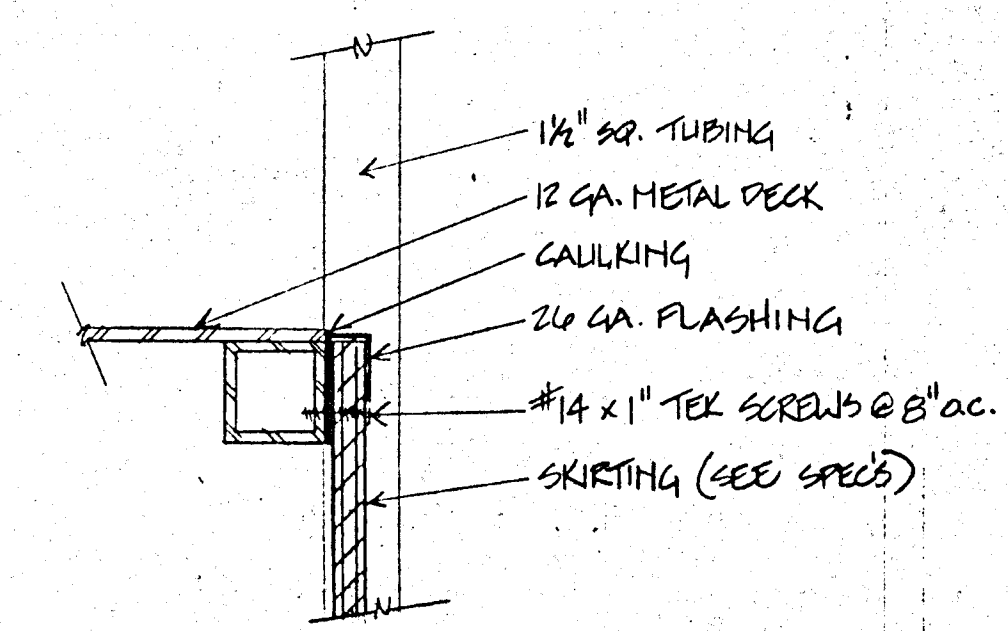 1½" SQ. TUBING
12 GA. METAL DECK
CAULKING
26 GA. FLASHING
#14 x 1" TEK SCREWS @ 8" O.C.
SKIRTING (SEE SPEC'S)